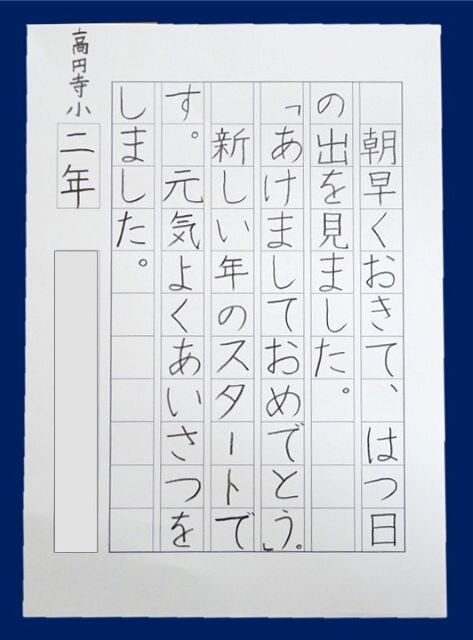 朝早くおきて、はつ日
の出を見ました。
「あけましておめでとう」。
新しい年のスタートで
す。元気よくあいさつを
しました。
高円寺小二年